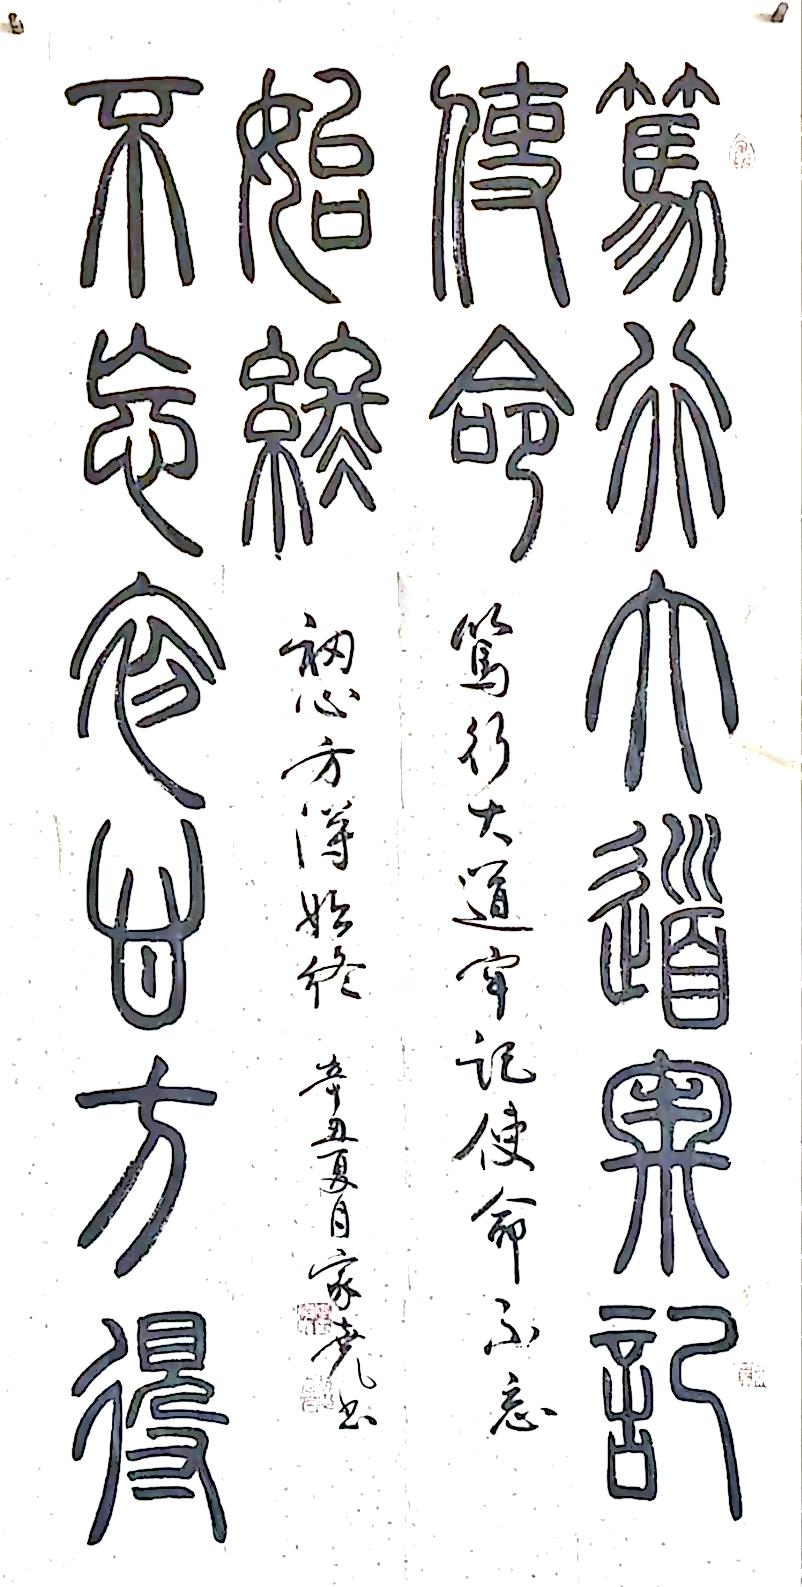 篤行大道牢記
使命
不忘初心方得
始終
篤行大道牢记使命不忘
初心方得始终 辛丑夏月家尧书